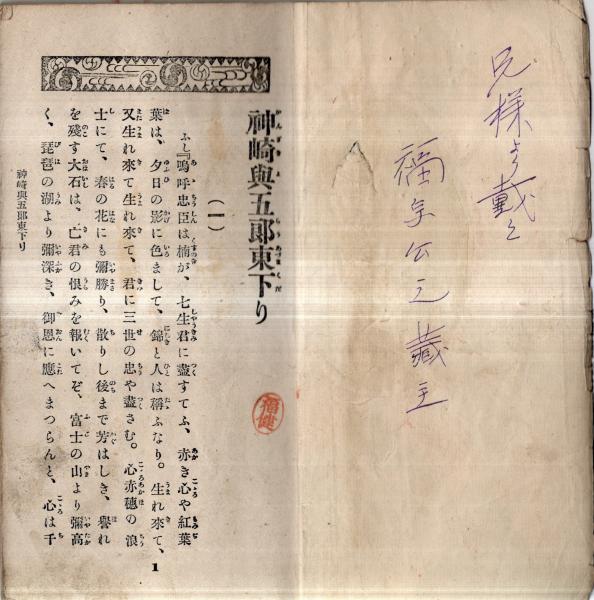 兄様より戴之
福 公之蔵主
神崎與五郎東下り
(一)
ふし『嗚呼忠臣は楠が、七生君に盡すてふ、赤き心や紅葉
葉は、夕日の影に色まして、錦と人は稱ふなり。生れ來て、
又生れ來て生れ來て、君に三世の忠や盡さむ。心赤穗の浪
士にて、春の花にも彌勝り、散りし後まで芳はしき、譽れ
を殘す大石は、亡君の恨みを報いてぞ、富士の山より彌高
く、琵琶の湖より彌深き、御恩に應へまつらんと、心は千
神崎與五郎東下り
1
福健